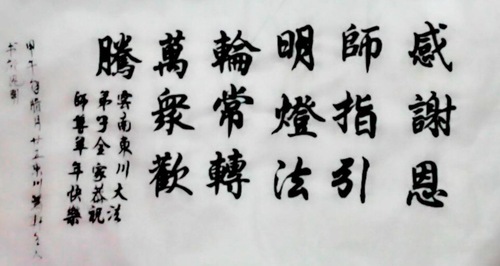 感謝恩
師指引
明燈法
輪常轉
萬衆歡
騰
雲南東川大法
弟子全家恭祝
師尊羊年快樂
甲午年臘月廿五東川